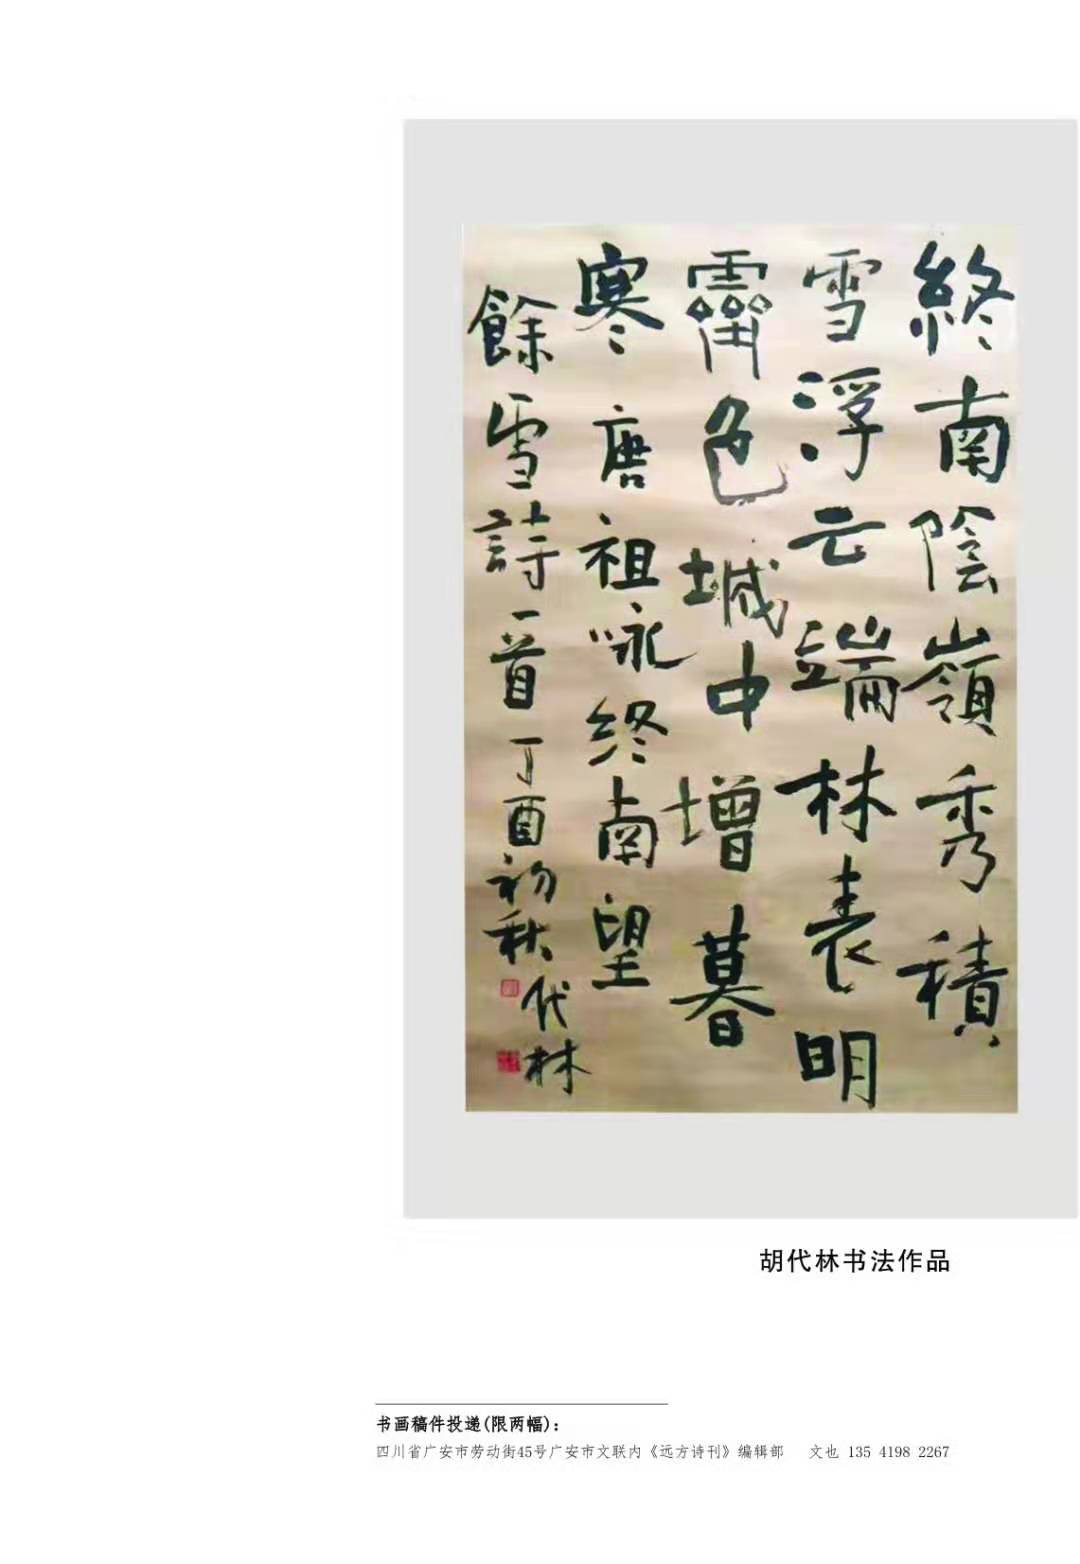 終南陰嶺秀積
雪浮云端林表明
霽色城中增暮
寒唐祖咏终南望
餘雪詩一首丁酉初秋代林
胡代林书法作品
书画稿件投递(限两幅):
四川省广安市劳动街45号广安市文联内《远方诗刊》编辑部 文也 135 4198 2267